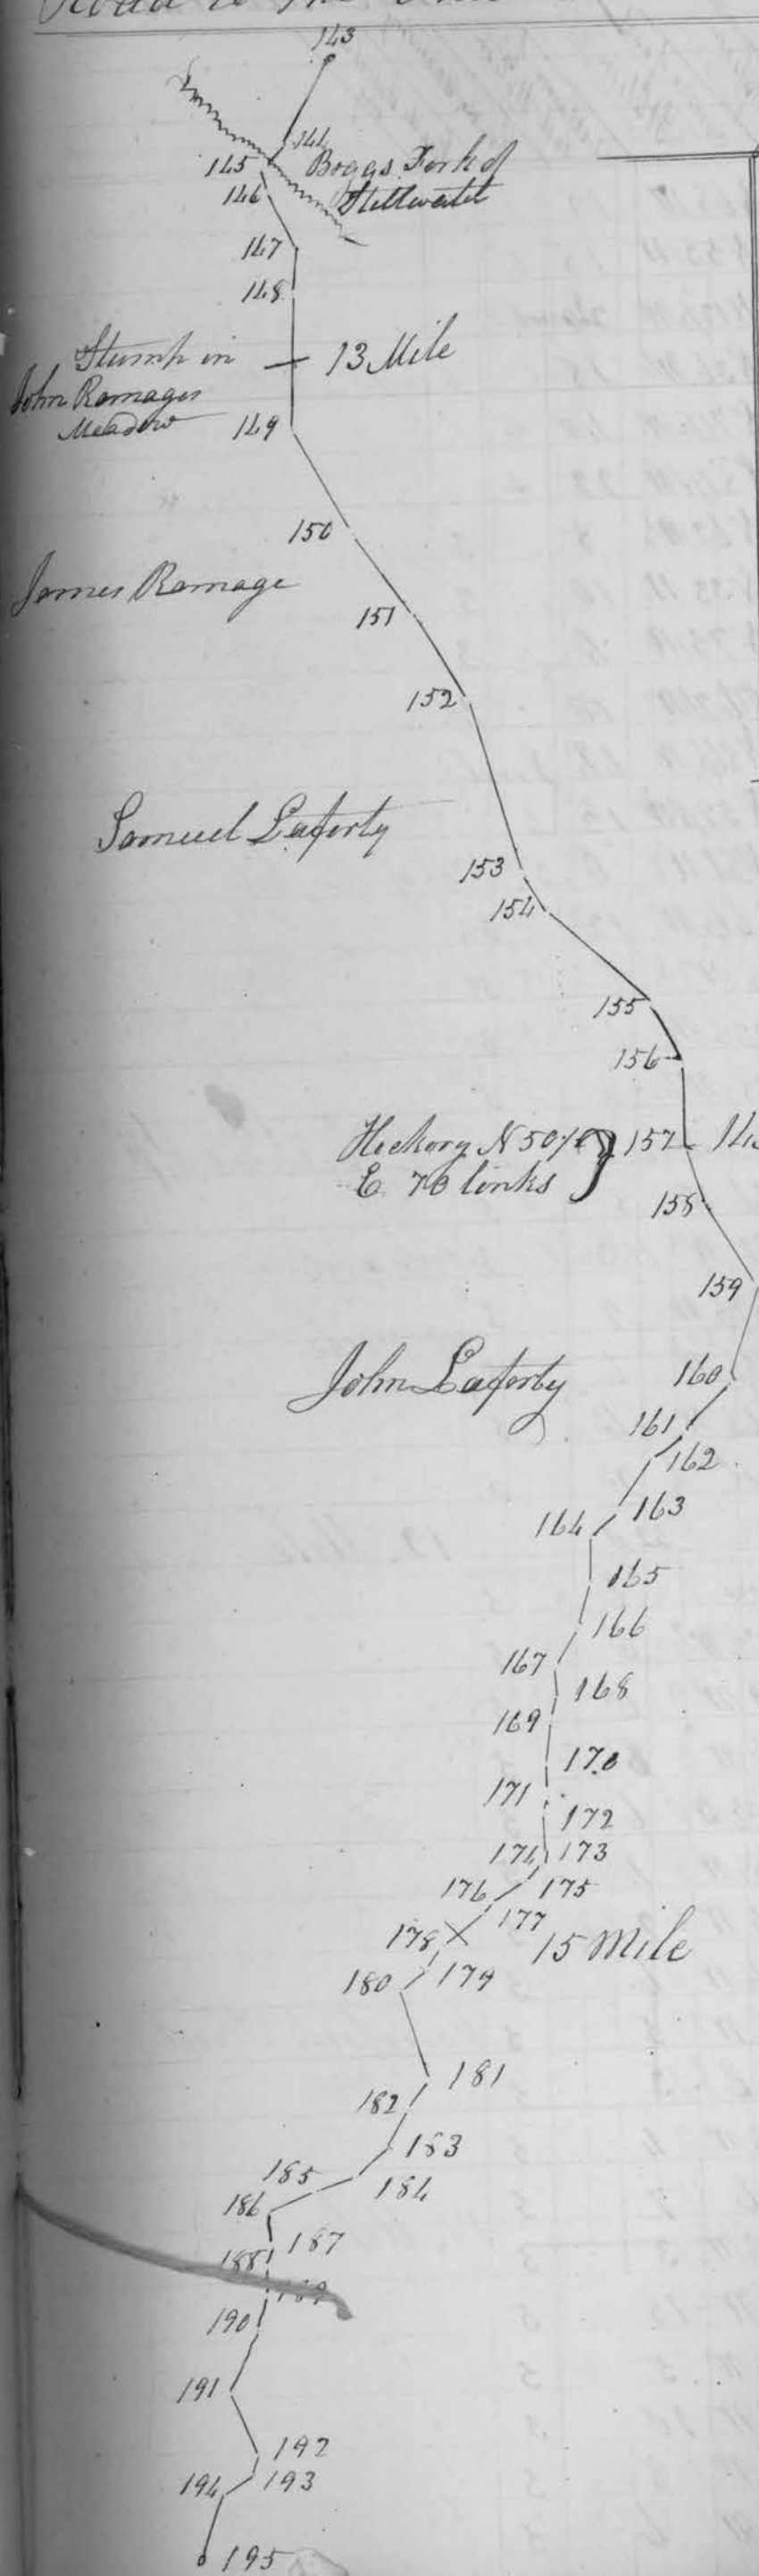 Road to the
143
144
145 Boggs Fork of
146 Stillwater
147
148
Stump in — 13 Mile
John Ramages
Meadow
149
150
James Ramage
151
152
Samuel Laferty
153
154
155
156
Hickory N 50 } 157
E 70 links
158
159
John Laferty 160
161
162
163
164
165
166
167
168
169
170
171
172
174 173
176 175
177
178 15 Mile
180 179
181
182
183
185
184
186
187
188
189
190
191
192
194 193
195